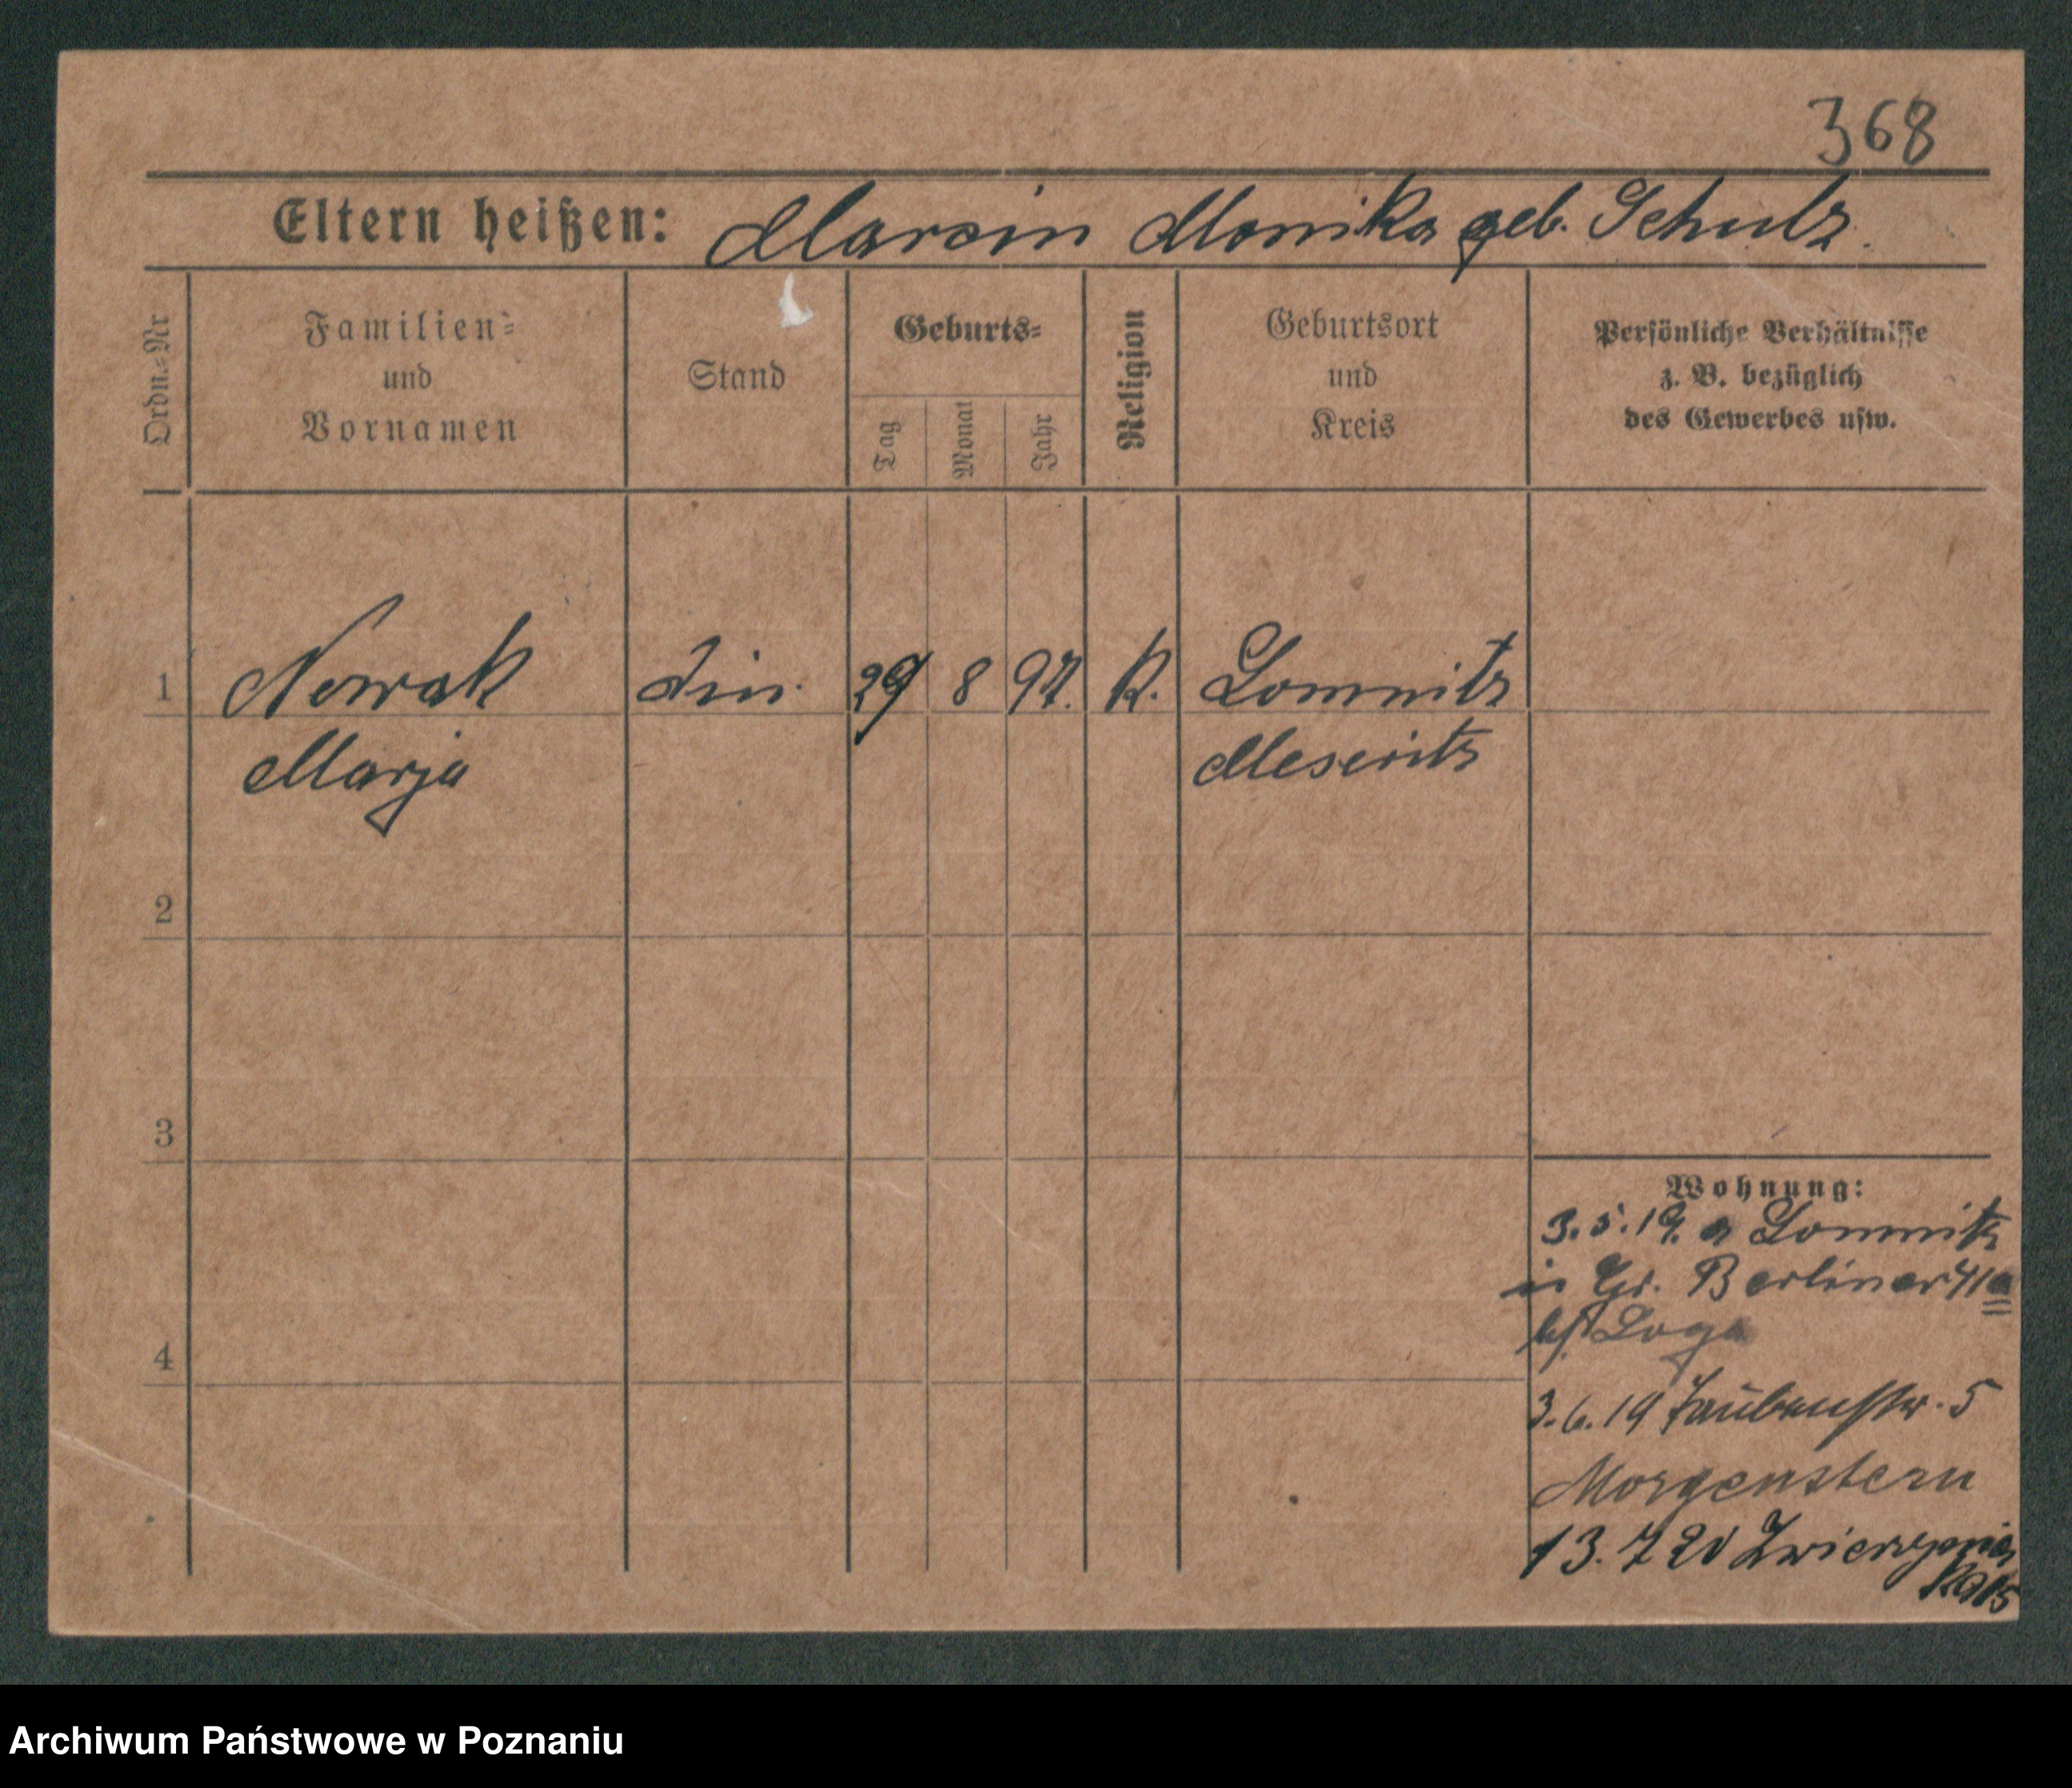 368
Eltern heißen: Marcin Monika geb. Schulz.
Ordn.=Nr
Familien= und Vornamen
Stand
Geburts=
Tag
Monat
Jahr
Religion
Geburtsort und Kreis
Persönliche Verhältnisse z. B. bezüglich des Gewerbes usw.
1 Nowak 29 8 97. K. Lomnitz
Marja Meseritz
2
3
4
Wohnung:
3.5.19. a Lomnitz
in Gr. Berliner 41a
bf. Loga
3.6.19 Taubenstr. 5
Morgenstern
13. 7 20
Archiwum Państwowe w Poznaniu